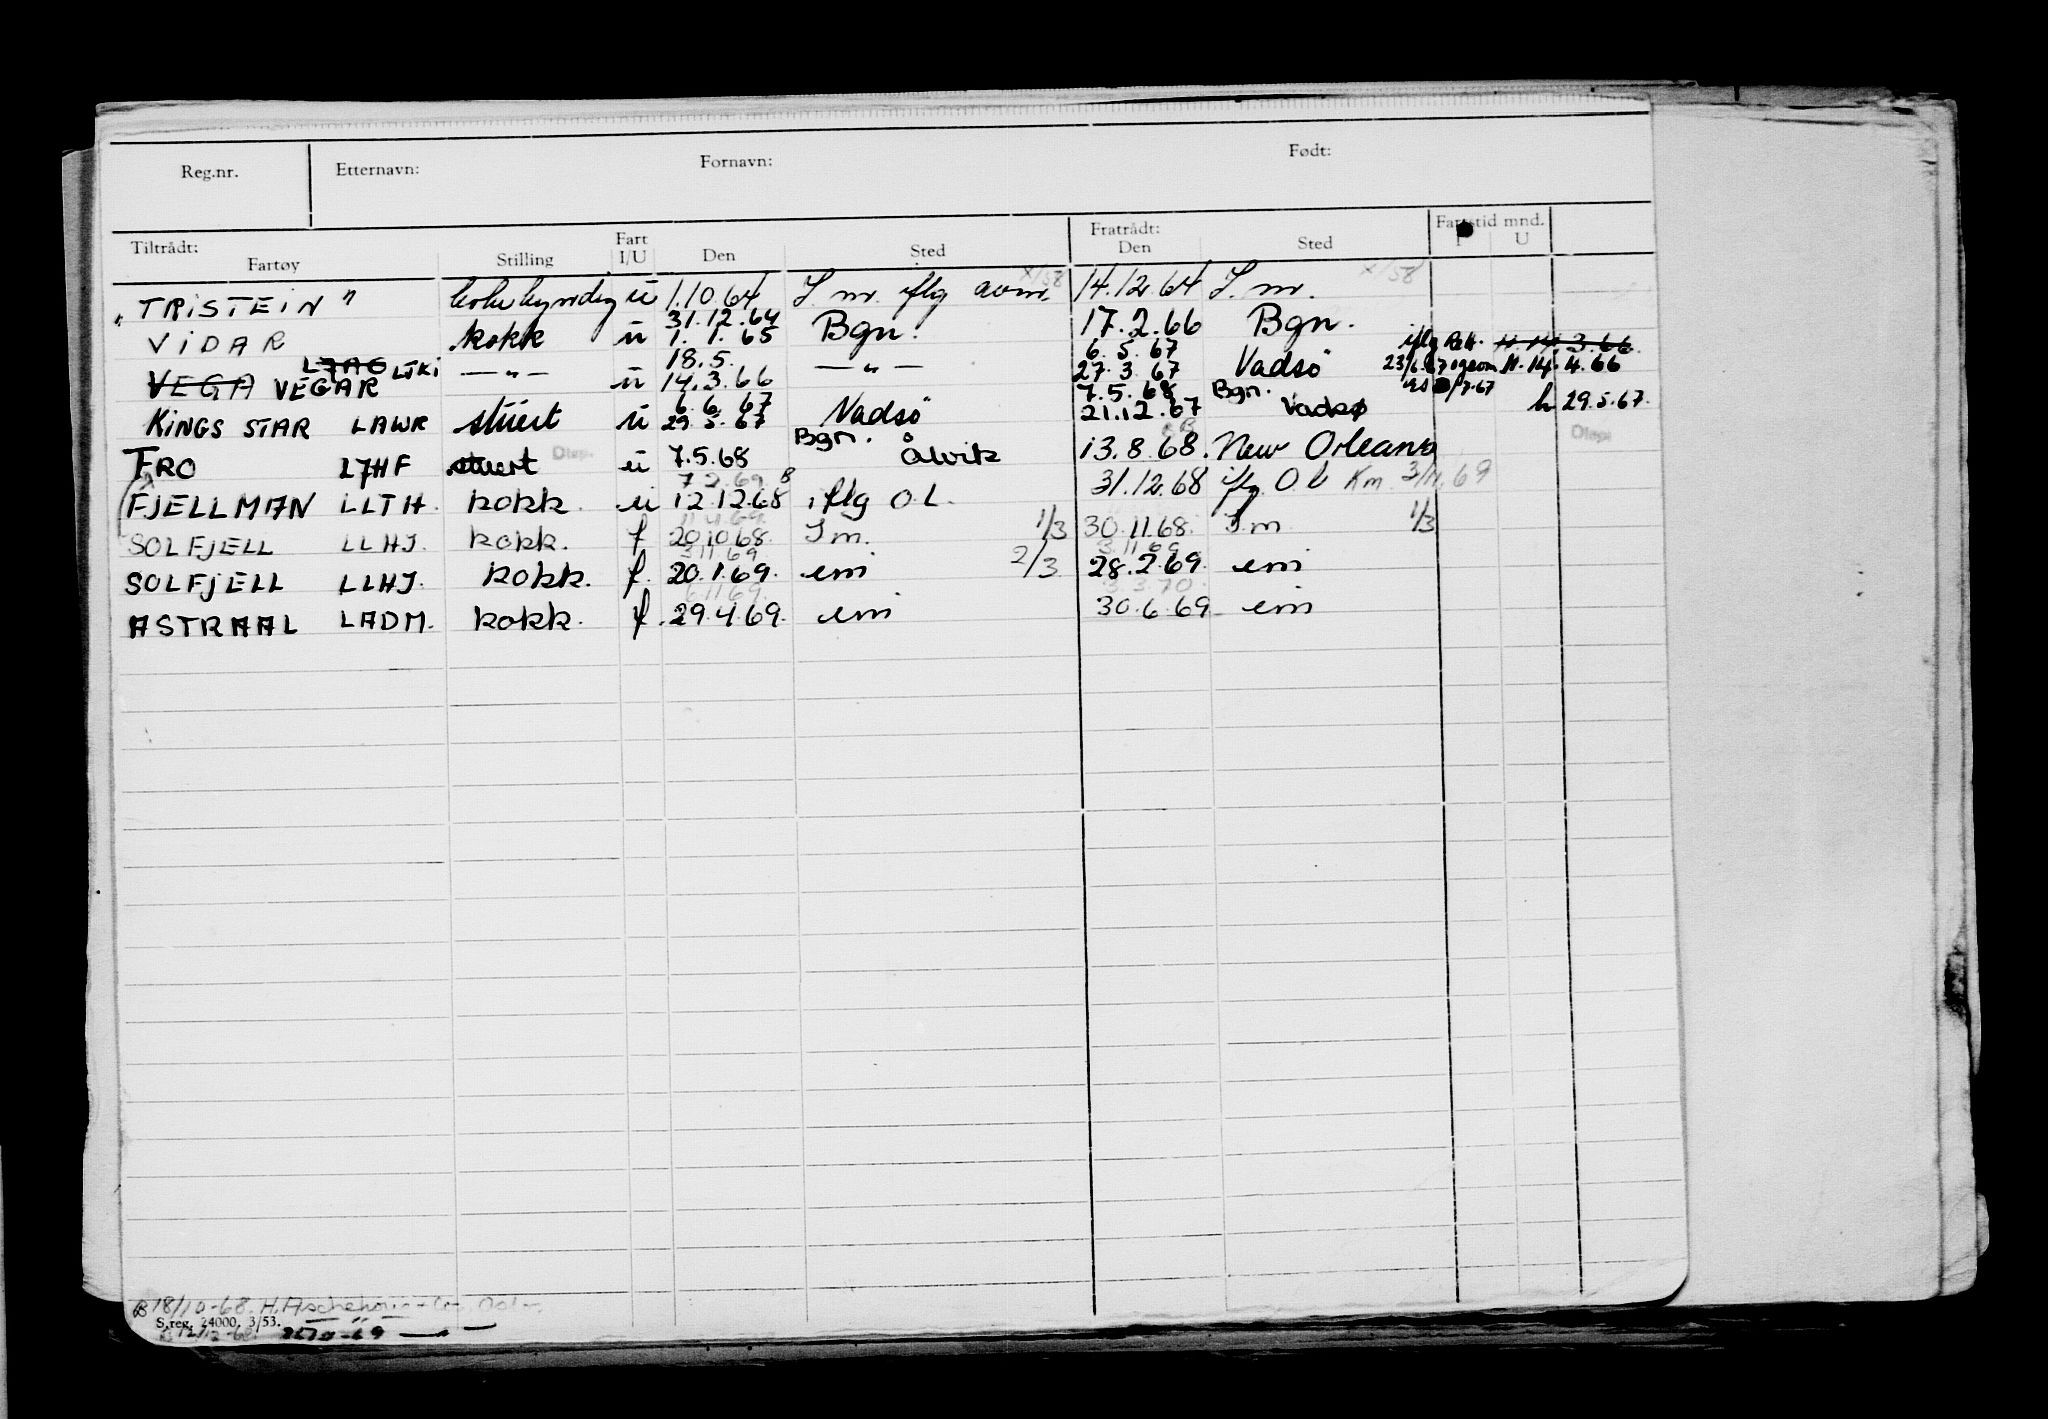 Reg.nr. Etternavn: Fornavn: Født:
Tiltrådt: Fartøy Stilling Fart I/U Den Sted Fratrådt: Den Sted Fartstid mnd. I U
"TRISTEIN" ü 1.10.64 S.m. iflg 14.12.64 S.m.
VIDAR kokk ü 31.12.64 1.1.65 Bgn. 17.2.66 Bgn.
VEGA VEGAR L7AO LTKI —"— ü 18.5. 14.3.66 —"— 6.5.67 27.3.67 Vadsö iflg 14.3.66 14.4.66
KINGS STAR LAWR stüert ü 6.6.67 29.5.67 Vadsö 7.5.68 21.12.67 Bgn. Vadsø 29.5.67
FRO L7HF stuert Disp. ü 7.5.68 Bgn. Ålvik 13.8.68. New Orleans Disp.
FJELLMAN LLTH. kokk. ü 7.2.69 12.12.68 iflg O.L. 31.12.68 iflg O.L Km 3/11.69
SOLFJELL LLHJ. kokk. f 20.10.68. S m. 1/3 30.11.68. S.m 1/3
SOLFJELL LLHJ. kokk. f. 3.11.69 20.1.69. em 2/3 3.11.69 28.2.69. em
ASTRAAL LADM. kokk. f. 6.11.69. 29.4.69. em 3.3.70. 30.6.69 em
18/10-68. H.
S.reg. 24000. 3/53.